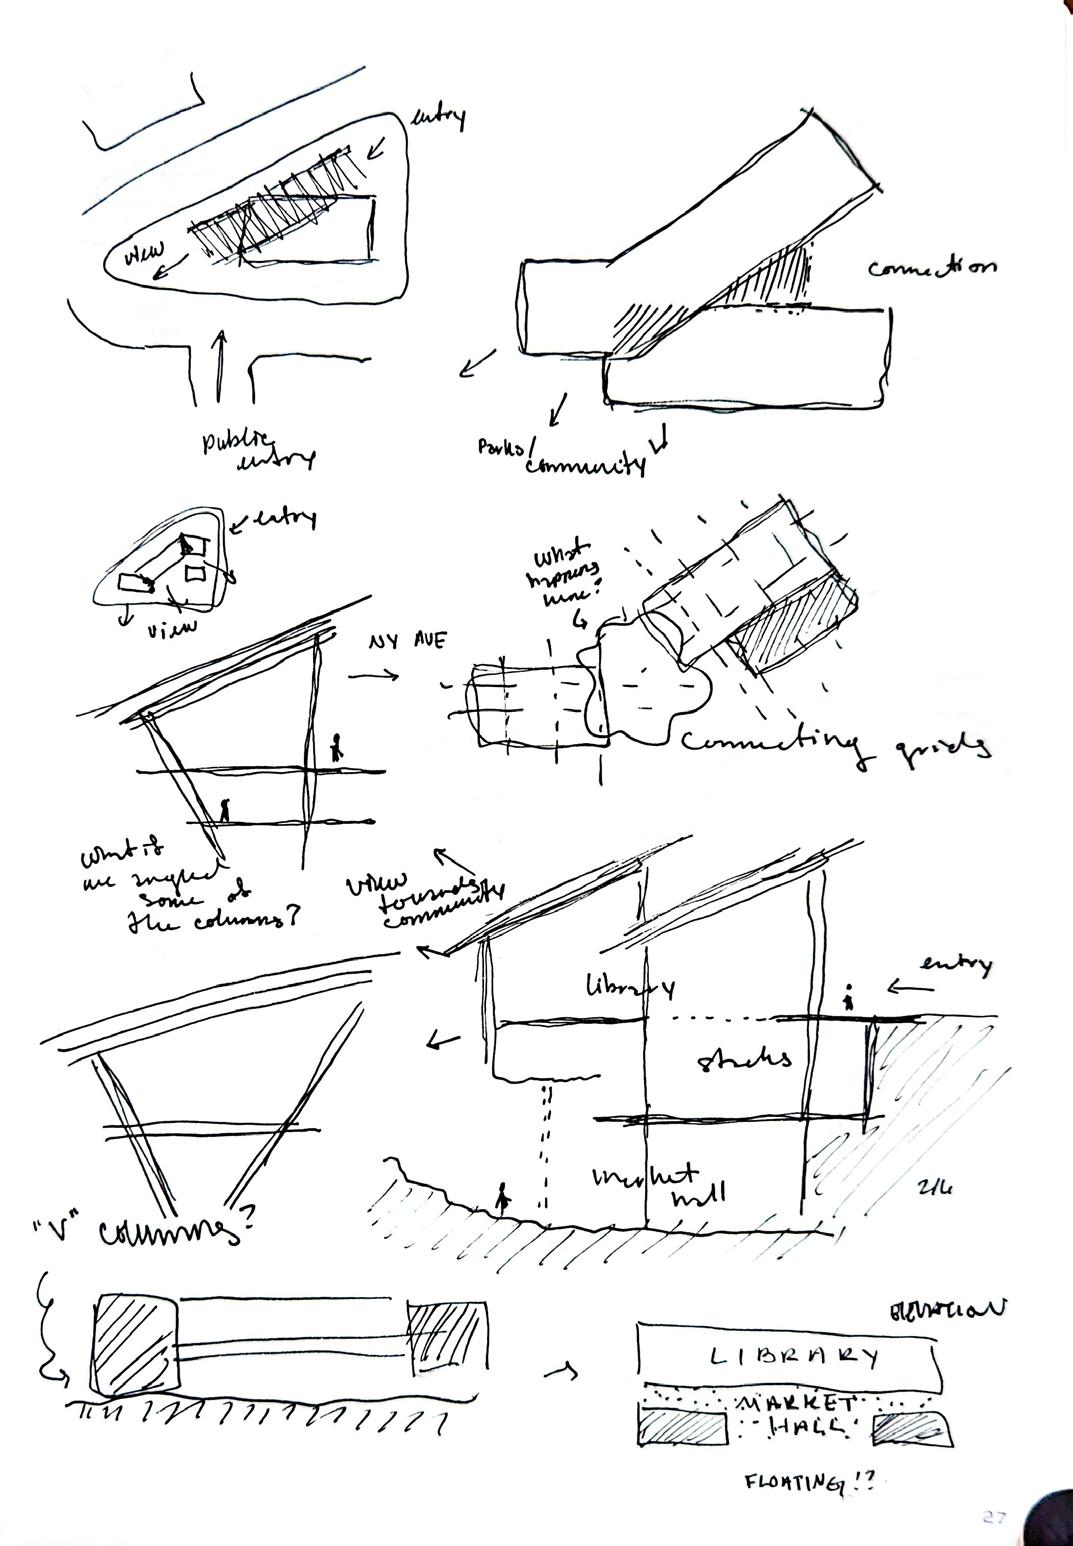 entry
view
connection
public
entry
Parks/
community
entry
view
What
happens
here?
NY AVE
connecting grids
What if
we angled
some of
the columns?
view
towards
community
library
entry
stacks
market
hall
"V" columns?
ELEVATION
LIBRARY
MARKET
HALL
FLOATING!?
27